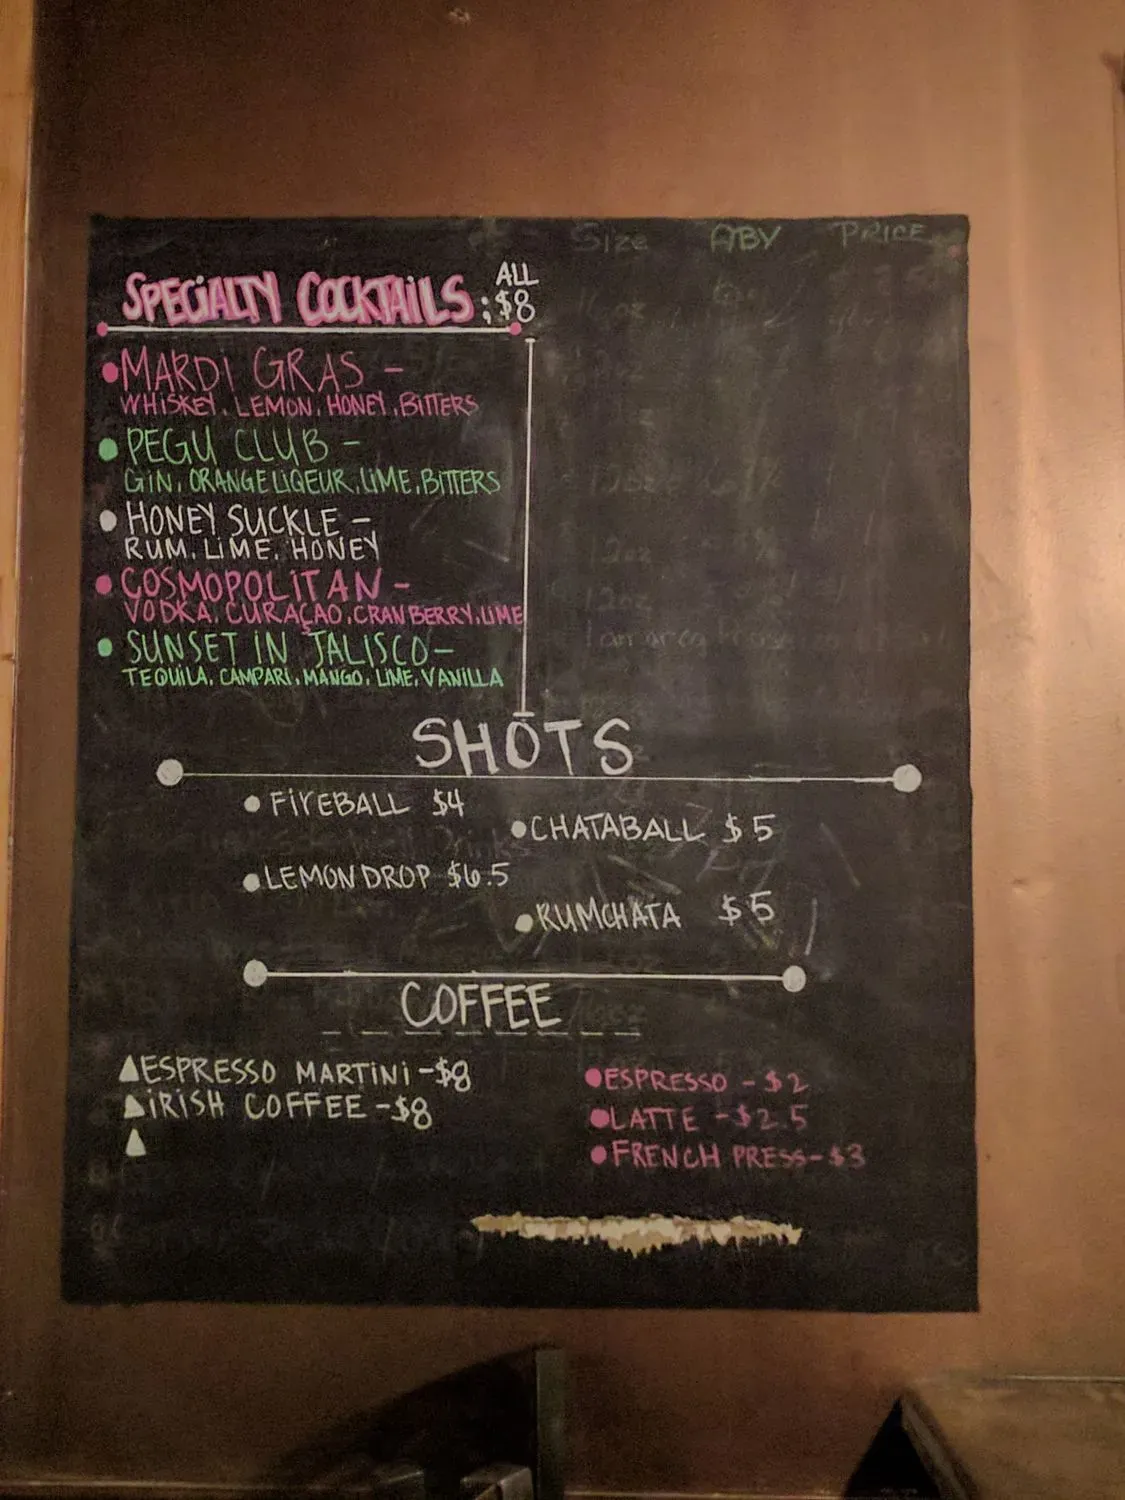 Size ABV PRICE
SPECIALTY COCKTAILS; ALL $8
•MARDI GRAS -
WHISKEY, LEMON, HONEY, BITTERS
• PEGU CLUB -
GIN, ORANGE LIQEUR, LIME, BITTERS
• HONEY SUCKLE -
RUM, LIME, HONEY
• COSMOPOLITAN -
VODKA, CURAÇAO, CRANBERRY, LIME
• SUNSET IN JALISCO-
TEQUILA, CAMPARI, MANGO, LIME, VANILLA
SHOTS
• FIREBALL $4
• CHATABALL $5
• LEMON DROP $6.5
• RUMCHATA $5
COFFEE
▲ESPRESSO MARTINI -$8
▲IRISH COFFEE -$8
▲
•ESPRESSO - $2
•LATTE -$2.5
•FRENCH PRESS-$3